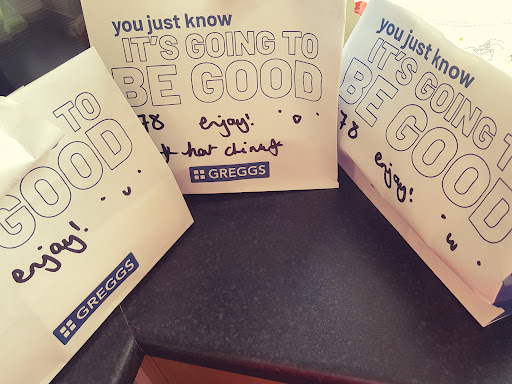 TO
GOOD
enjoy!
GREGGS
you just know
IT'S GOING TO
BE GOOD
78 enjoy!
GREGGS
you just know
IT'S GOING T
BE GOOD
78
enjoy!